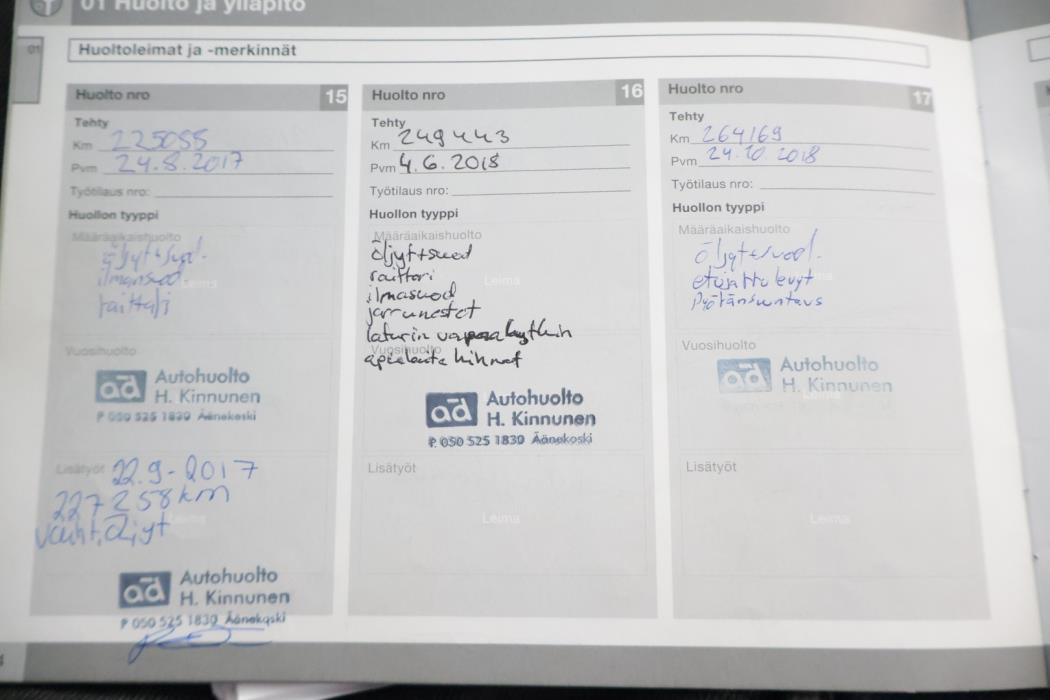 01 Huolto ja ylläpito
01
Huoltoleimat ja -merkinnät
Huolto nro 15
Tehty
Km 225055
Pvm 24.8.2017
Työtilaus nro:
Huollon tyyppi
Määräaikaishuolto
öljyt+suod.
ilmansuod
raittari
Leima
Vuosihuolto
ad Autohuolto
H. Kinnunen
P. 050 525 1830 Äänekoski
Lisätyöt 22.9-2017
227258km
vaiht.öljyt
Leima
ad Autohuolto
H. Kinnunen
P. 050 525 1830 Äänekoski
Huolto nro 16
Tehty
Km 249443
Pvm 4.6.2018
Työtilaus nro:
Huollon tyyppi
Määräaikaishuolto
öljyt+suod
raittari
Leima
ilmasuod
jarrunestet
laturin vapaakytkin
Vuosihuolto
apulaite hihnat
ad Autohuolto
H. Kinnunen
P. 050 525 1830 Äänekoski
Lisätyöt
Leima
Huolto nro 17
Tehty
Km 264169
Pvm 24.10.2018
Työtilaus nro:
Huollon tyyppi
Määräaikaishuolto
öljyt+suod.
etujarrulevyt
Pyöränsuntaus
Vuosihuolto
ad Autohuolto
H. Kinnunen
Leima
Lisätyöt
Leima